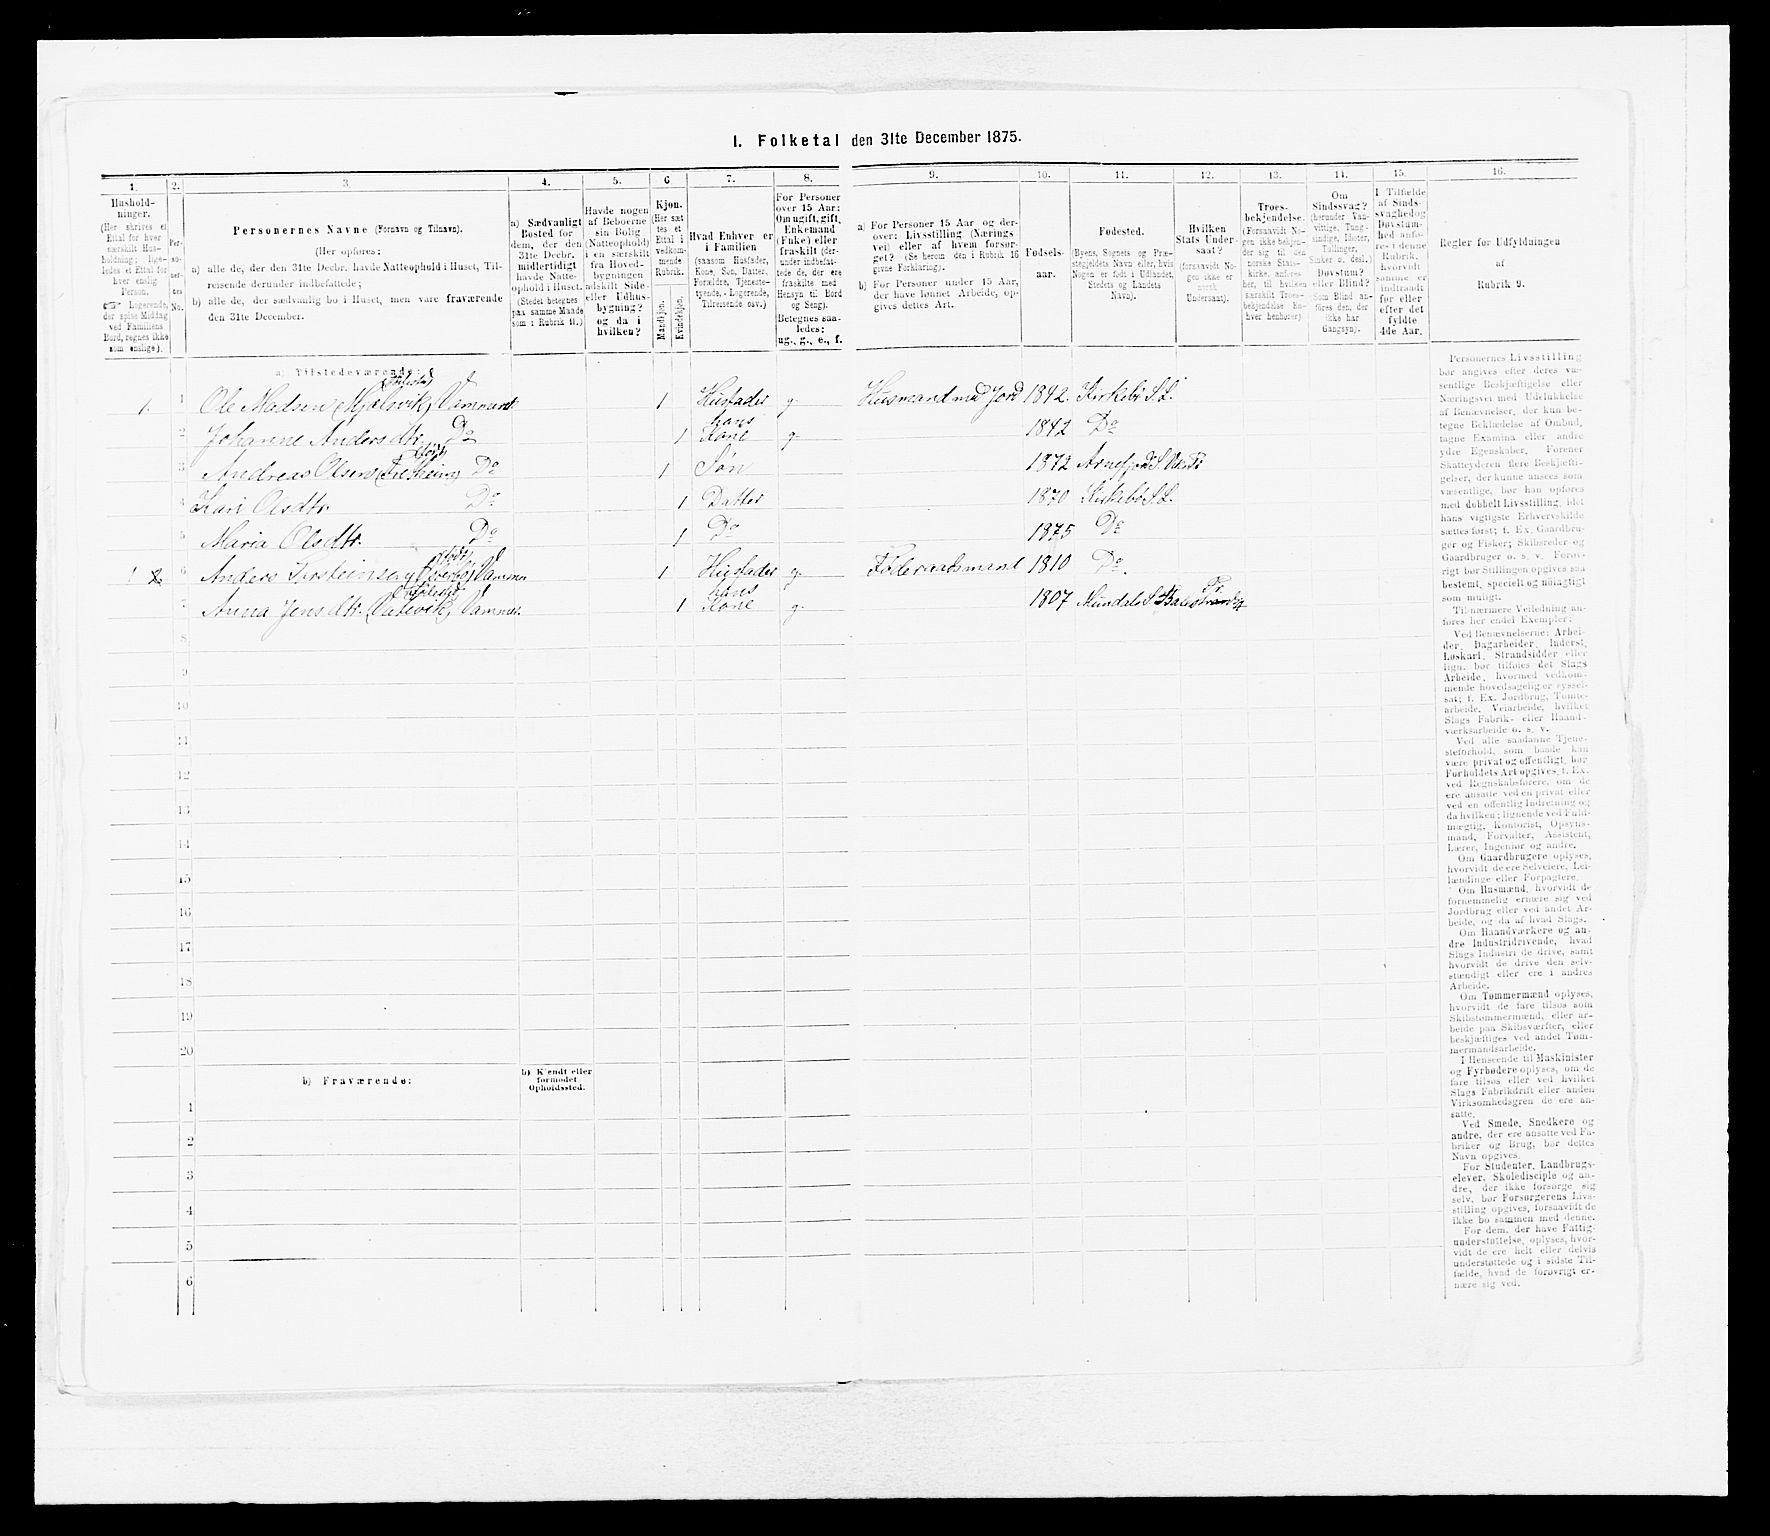 I. Folketal den 31te December 1875.
1. 2. 3. 4. 5. 6 7. 8. 9. 10. 11. 12. 13. 14. 15. 16.
Hushold-
ninger.
(Her skrives et
Ettal for hver
særskilt Hus-
holdning; lige-
ledes et Ettal for
hver enslig
Person.
Logerende,
der spise Middag
ved Familiens
Bord, regnes ikke
som enslige).
Per-
so-
ner-
nes
No.
Personernes Navne (Fornavn og Tilnavn).
(Her opføres:
a) alle de, der den 31te Decbr. havde Natteophold i Huset, Til-
reisende derunder indbefattede;
b) alle de, der sædvanlig bo i Huset, men vare fraværende
den 31te December.
a) Sædvanligt
Bosted for
dem, der den
31te Decbr.
midlertidigt
havde Natte-
ophold i Huset.
(Stedet betegnes
paa samme Maade
som i Rubrik 11.)
Havde nogen
af Beboerne
sin Bolig
(Natteophold)
i en særskilt
fra Hoved-
bygningen
adskilt Side-
eller Udhus-
bygning?
og da i
hvilken?
Kjøn.
(Her sæt
tes et
Ettal i
vedkom-
mende
Rubrik.
Mandkjøn.
Kvindekjøn.
Hvad Enhver er
i Familien
(saasom Husfader,
Kone, Søn, Datter,
Forældre, Tjeneste-
tyende, - Logerende,
Tilreisende osv.)
For Personer
over 15 Aar:
Om ugift, gift,
Enkemand
(Enke) eller
fraskilt (der-
under indbefat-
tede de, der ere
fraskilte med
Hensyn til Bord
og Seng).
Betegnes saa-
ledes:
ug., g., e., f.
a) For Personer 15 Aar og der-
over: Livsstilling (Nærings
vei) eller af hvem forsør-
get? (Se herom den i Rubrik 16
givne Forklaring).
b) For Personer under 15 Aar,
der have lønnet Arbeide, op-
gives dettes Art.
Fødsels-
aar.
Fødested.
(Byens, Sognets og Præ-
stegjeldets Navn eller, hvis
Nogen er født i Udlandet,
Stedets og Landets
Navn).
Hvilken
Stats Under-
saat?
(forsaavidt No-
gen ikke er
norsk
Undersaat).
Troes-
bekjendelse.
(Forsaavidt No-
gen ikke bekjen-
der sig til den
norske Stats-
kirke, anføres
her, til hvilken
særskilt Troes-
bekjendelse En-
hver henhører).
Om
Sindssvag?
(herunder Van-
vittige, Tung-
sindige, Idioter,
Tullinger,
Sinker o. desl.)
Døvstum?
eller Blind?
(Som Blind an-
føres den, der
ikke har
Gangsyn).
I Tilfælde
af Sinds-
svaghed og
Døvstum-
hed anfø-
res i denne
Rubrik,
hvorvidt
samme er
indtraadt
før eller
efter det
fyldte
4de Aar.
Regler for Udfyldningen
af
Rubrik 9.
a) Tilstedeværende:
1. 1 Ole Madsen Vammen 1 Husfader g. Husmand med Jord 1842. Kirkebø S. L.
2 Johanne Andersdtr. Do 1 hans Kone g. 1842 Do
3 Andreas Olsen Do 1 Søn 1872 Arnefjord S.
4 Kari Olsdtr. Do 1 Datter 1870 Kirkebø S. L.
5 Maria Olsdtr. Do 1 Do 1875 Do
1 2 6 Anders Vammen 1 Husfader g. Føderaadsmand 1810 Do.
7 Anna Jensdtr. Vammen. 1 hans Kone g. 1807 Mundals S. Balestrand
8
9
10
11
12
13
14
15
16
17
18
19
20
b) Fraværende:
b) Kjendt eller
formodet
Opholdssted.
1
2
3
4
5
6
Personernes Livsstilling
bør angives efter deres væ-
sentlige Beskjæftigelse eller
Næringsvei med Udelukkelse
af Benævnelser, der kun be-
tegne Beklædelse af Ombud,
tagne Examina eller andre
ydre Egenskaber. Forener
Skatteyderen flere Beskjæfti-
gelser, der kunne ansees som
væsentlige, bør han opføres
med dobbelt Livsstilling, idet
hans vigtigste Erhvervskilde
sættes først; f. Ex. Gaardbru-
ger og Fisker; Skibsreder og
Gaardbruger o. s. v. Forøv-
rigt bør Stillingen opgives saa
bestemt, specielt og nøiagtigt
som muligt.
Til nærmere Veiledning an-
føres her endel Exempler:
Ved Benævnelserne: Arbei-
der, Dagarbeider, Inderst,
Løskarl, Strandsidder eller
lign. bør tilføies det Slags
Arbeide, hvormed vedkom-
mende hovedsagelig er syssel-
sat; f. Ex. Jordbrug, Tomte-
arbeide, Veiarbeide, hvilket
Slags Fabrik- eller Haand-
værksarbeide o. s. v.
Ved alle saadanne Tjene-
steforhold, som baade kan
være privat og offentligt, bør
Forholdets Art opgives, f. Ex.
ved Regnskabsførere, om de
ere ansatte ved en privat eller
ved en offentlig Indretning og
da hvilken; lignende ved Fuld-
mægtig, Kontorist, Opsyns-
mand, Forvalter, Assistent,
Lærer, Ingeniør og andre.
Om Gaardbrugere oplyses,
hvorvidt de ere Selveiere, Lei-
lændinge eller Forpagtere.
Om Husmænd, hvorvidt de
fornemmelig ernære sig ved
Jordbrug eller ved andet Ar-
beide, og da af hvad Slags.
Om Haandværkere og an-
dre Industridrivende, hvad
Slags Industri de drive, samt
hvorvidt de drive den selv-
stændigt eller ere i andres
Arbeide.
Om Tømmermænd oplyses,
hvorvidt de fare tilsøs som
Skibstømmermænd, eller ar-
beide paa Skibsværfter, eller
beskjæftiges ved andet Tøm-
mermandsarbeide.
I Henseende til Maskinister
og Fyrbødere oplyses, om de
fare tilsøs eller ved hvilket
Slags Fabrikdrift eller anden
Virksomhedsgren de ere an-
satte.
Ved Smede, Snedkere og
andre, der ere ansatte ved Fa-
briker og Brug, bør dettes
Navn opgives.
For Studenter, Landbrugs-
elever, Skoledisciple og an-
dre, der ikke forsørge sig
selv, bør Forsørgerens Livs-
stilling opgives, forsaavidt de
ikke bo sammen med denne.
For dem, der have Fattig-
understøttelse, oplyses, hvor-
vidt de ere helt eller delvis
understøttede og i sidste Til-
fælde, hvad de forøvrigt er-
nære sig ved.